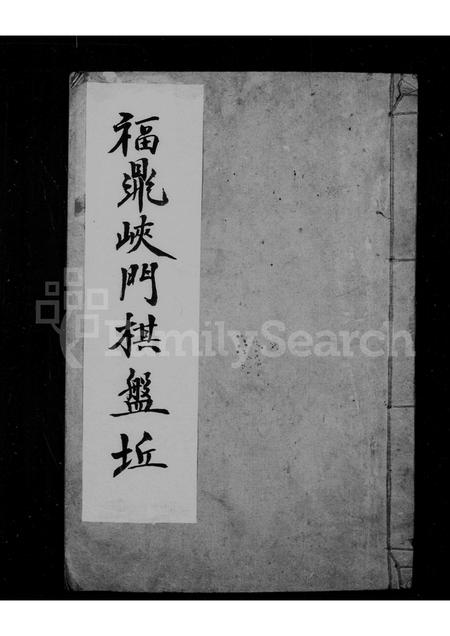 福鼎峽門棋盤坵
FamilySearch